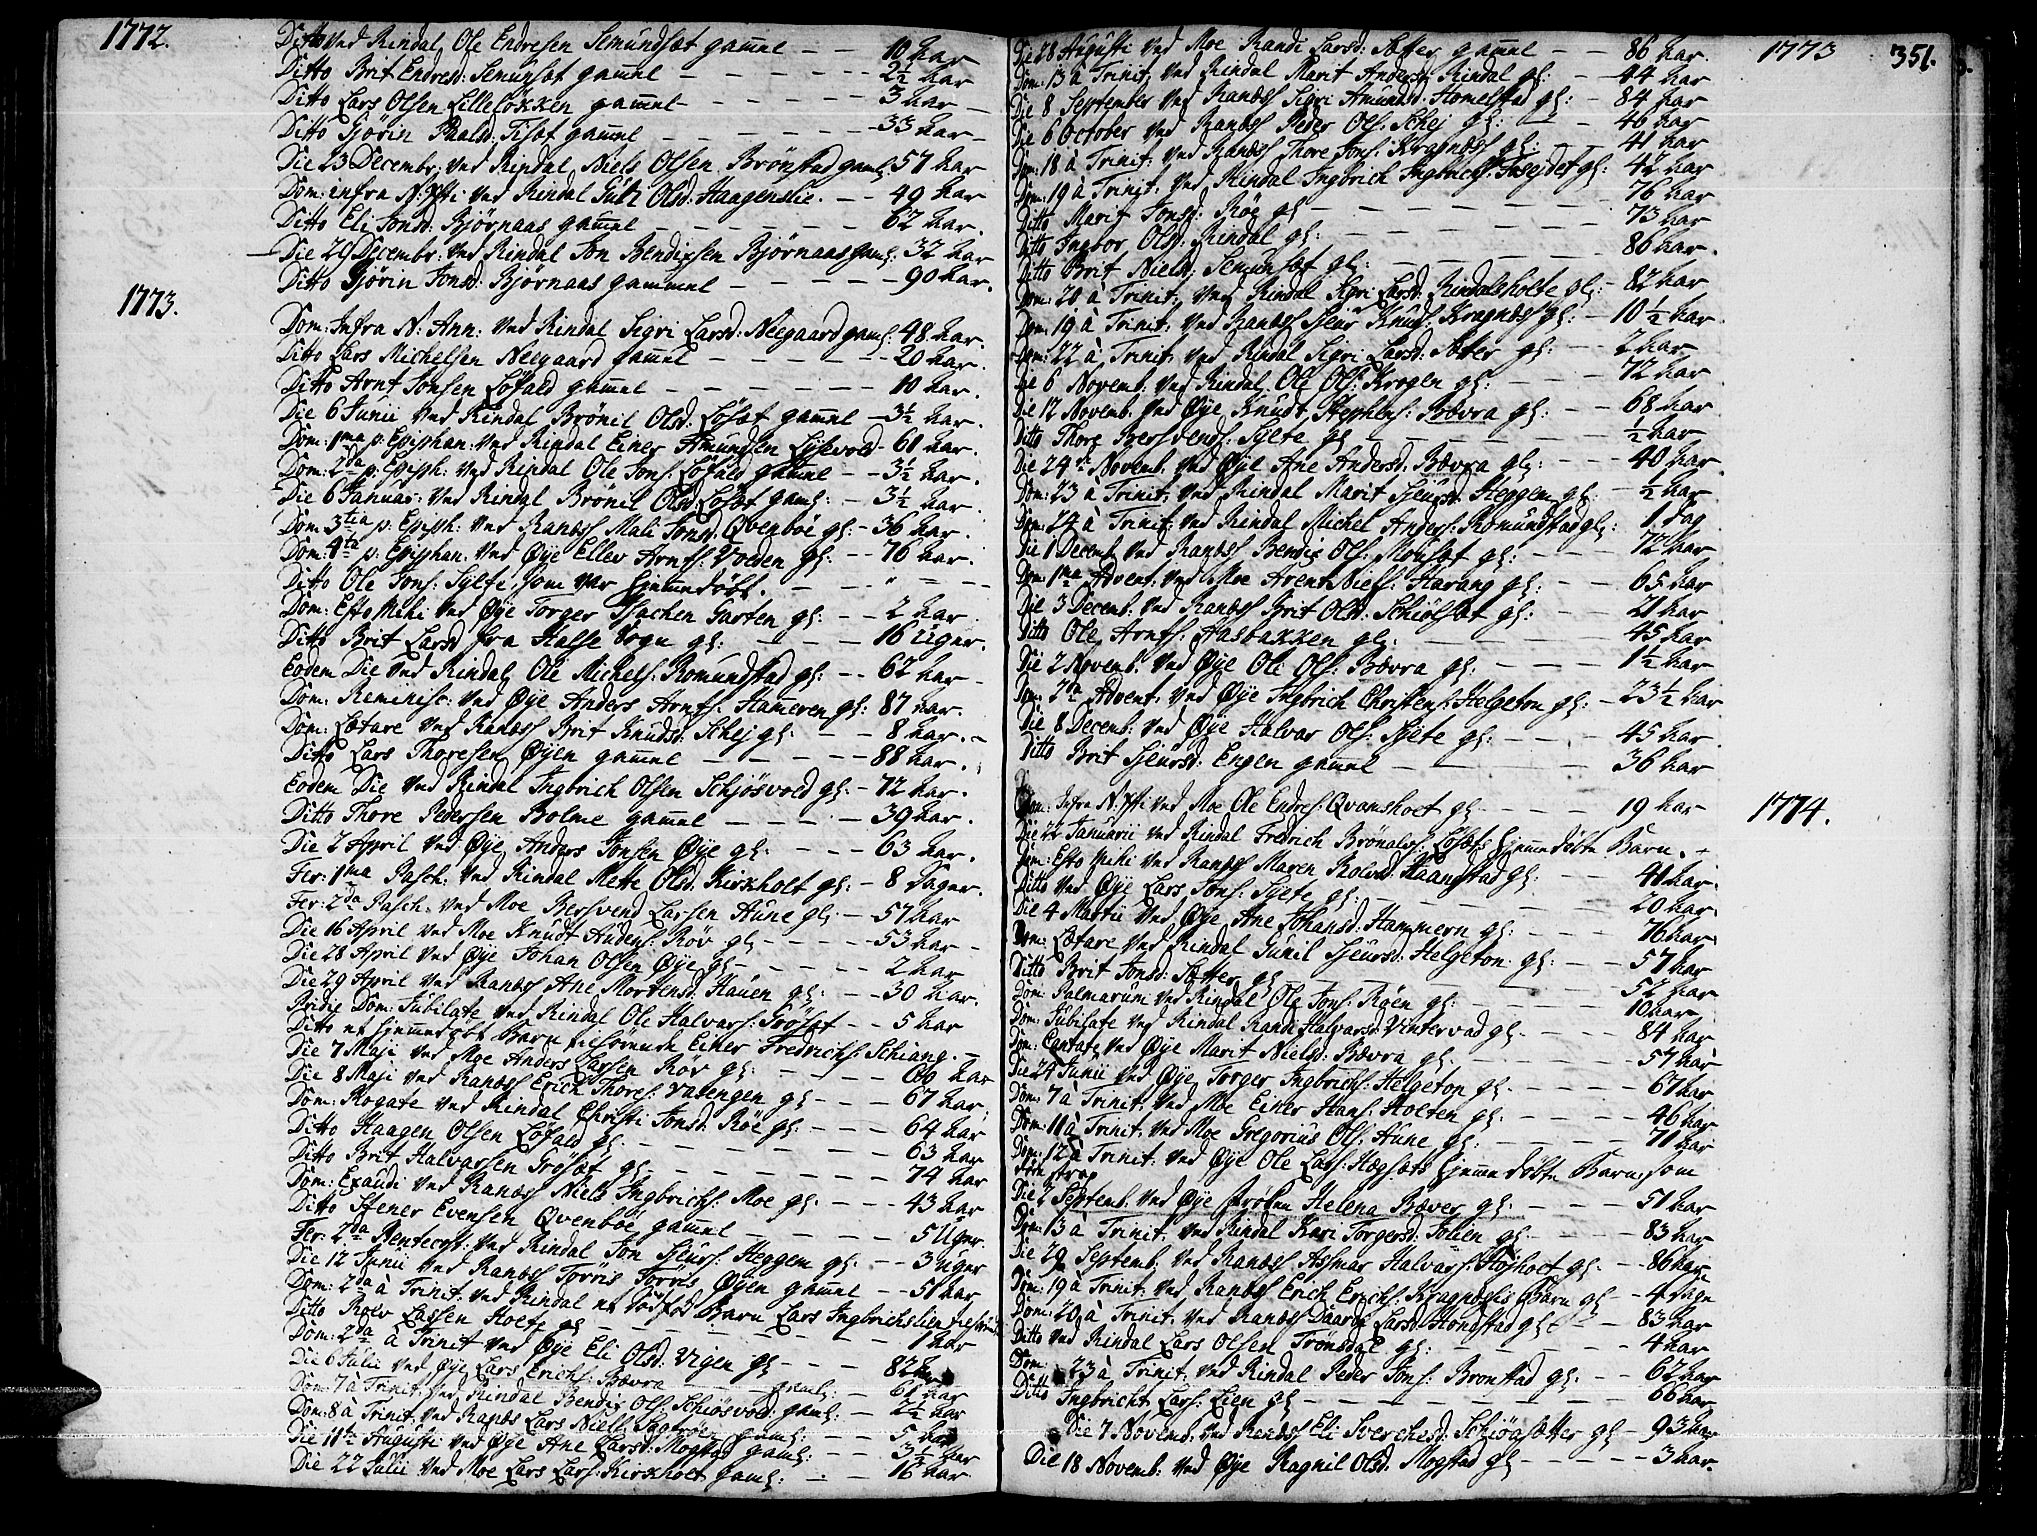 1772.
Ditto ved Rindal Ole Endresen Semundsæt gamel — — 10 aar
Ditto Brit Endresd: Semunsæt gamel — — 2½ aar
Ditto Lars Olsen Lilleløkken gamel — — 3 aar
Ditto Gjørin Paalsd: Tiset gamel — — 33 aar
Die 23 Decembr: ved Rindal Niels Olsen Brønstad gaml: 57 aar
Dom: infra N: Xsti ved Rindal Olsd: Haagenslie — — 49 aar
Ditto Eli Jonsd: Bjørnaas gamel — — 62 aar.
Die 29 Decembr: ved Rindal Jon Bendixsen Bjørnaas gaml: 32 aar
Ditto Gjørin Jonsd: Bjørnaas gammel — — 90 aar.
1773.
Dom: Infra N: Ann: ved Rindal Sigri Larsd: Neegaard gaml: 48 aar.
Ditto Lars Michelsen Neegaard gamel — — 20 aar.
Ditto Arnt Jonsen Løfald gamel — — 10 aar.
Die 6 Junii ved Rindal Brønil Olsd: Løsæt gamel — 3½ aar.
Dom: 1ma p: Epiphan: ved Rindal Einer Amundsen Lysevold — 61 aar.
Dom: 2da p: Epiph: ved Rindal Ole Jons: Løfald gamel — 3½ aar.
Die 6 Januar: ved Rindal Brønil Olsd: Løsæt gaml: — 3½ aar.
Dom: 3tia p: Epiph: ved Ranæs Mali Jonsd: Qvenboe gl: — 36 aar.
Dom: 4ta p: Epiphan: ved Øye Ellev Arnts: Voeden gl: — 76 aar.
Ditto Ole Jons: Sylte, som var hjemmedøbt. — —
Dom: Esto Mihi ved Øye Torger Garten gl: — — 2 aar
Ditto Brit Larsd: fra Halse Sogn gl: — — 16 Uger.
Eodem Die ved Rindal Ole Michels: Romundstad gl: — — 62 aar
Dom: Reminisc: ved Øye Anders Arnts: Hameren gl: 87 aar.
Dom: Lætare ved Ranæs Brit Knudsd: Schej gl: — — 8 aar.
Ditto Lars Thoresen Øyen gamel — — 88 aar.
Eodem Die ved Rindal Ingbrich Olsen Schjøsvold gl: — 72 aar.
Ditto Thore Pedersen Bolme gamel — — 39 aar.
Die 2 April ved Øye Anders Jonsen Øye gl: — — 63 aar.
Fer: 1ma Pasch: ved Rindal Mette Olsd: Kirkholt gl: — 8 Dager.
Fer: 2da Pasch: ved Moe Bersvend Larsen Aune gl: — 57 aar
Die 16 April ved Moe Knudt Audens: Røv gl: — — 53 aar
Die 28 April ved Øye Johan Olsen Øye gl: — — 2 aar
Die 29 April ved Ranæs Ane Mortensd: Hauen gl: — — 30 aar.
Pridie Dom: Jubilate ved Rindal Ole Halvars: Grøset — — 5 aar
Ditto et hjemmedøbt Barn Einer Fredrichs: Schiang.
Die 7 Maji ved Moe Anders Larsen Røv gl: — — 60 aar
Die 8 Maji ved Ranæs Erich Thores: Vasengen gl: — — 67 aar
Dom: Rogate ved Rindal Christi Jonsd: Røe gl: — — 64 aar
Ditto Haagen Olsen Løfald gl: — — 63 aar
Ditto Brit Halvarsen Grøsæt gl: — — 74 aar
Dom: Exaudi ved Ranæs Niels Ingbrichs: Moe gl: — — 43 aar
Ditto Stener Evensen Qvenboe gamel — — 5 Uger.
Fer: 2da Pentecost: ved Rindal Jon Sjeurs: Heggem gl: — — 3 uger
Die 12 Junii ved Ranæs Torris Torris: Øyen gamel — — 51 aar
Dom: 2da à Trinit: ved Rindal et Dødfød Barn Lars Ingbrichs: Lien
Ditto Roelv Lassen Hoete gl: — — 1 aar
Dom: 2da à Trinit ved Øye Eli Olsd: Vigen gl: — — 82 aar
Die 6 Julii ved Øye Lars Erichs: Bævra gaml: — 61 aar
Dom: 7 à Trinit: ved Rindal Bendix Ols: Schiøsvold gaml: — 2½ aar
Dom: 8 à Trinit: ved Ranæs Lars Niels: gaml: — — 5 aar
Die 11te Augusti ved Øye Ane Larsd: Mogstad gaml: — — 3½ aar
Die 22 Julii ved Moe Lars Lars: Kirkholt gaml: — — 16 aar
1773 351.
Die 28 Augusti ved Moe Randi Larsd: Sætter gamel — — 86 aar
Dom: 13 à Trinit: ved Rindal Marit Andersd: Rindal gl: — 44 aar
Die 8 September ved Ranæs Sigri Amundsd: Homelstad gl: — 84 aar
Die 6 October ved Ranæs Peder Ols: Schej gl: — — 46 aar
Dom: 18 à Trinit: ved Ranæs Thore Jons: Kragnæs gl: — 41 aar
Dom: 19 à Trinit: ved Rindal Ingbrich Ingbrichs: gl: 42 aar
Ditto Marit Jonsd: Røe gl — — 76 aar
Ditto Ingbor Olsd: Rindal gl: — — 73 aar
Ditto Brit Nielsd: Semunsæt gl: — — 86 aar.
Dom: 20 à Trinit: ved Rindal Sigri Larsd: Rindalsholte gl: — 82 aar
Dom: 19 à Trinit: ved Ranæs Sjeur Knuds: Kragnæs gl: — 10½ aar
Dom: 22 à Trinit: ved Rindal Sigri Larsd: Sætter gl: — 2 aar
Die 6 Novemb: ved Rindal Ole Ols: Krogen gl: — — 72 aar
Die 12 Novemb: ved Øye Knudt Stephens: Bævra gl: — — 68 aar
Ditto Thore Bersvends: Sylte gl — — ½ aar
Die 24de Novemb: ved Øye Ane Andersd: Bævra gl: — — 40 aar
Dom: 23 à Trinit: ved Rindal Marit Sjeursd: Heggem gl: — ½ aar
Dom: 24 à Trinit: ved Rindal Michel Anders: Romundstad gl: 1 dag
Die 1 Decemb: ved Ranæs Bendix Ols: Mousæt gl: — — 72 aar
Dom: 1ma Advent: ved Moe Arent Niels: Harang gl: — — 65 aar
Die 3 Decemb: ved Ranæs Brit Olsd: Schiølsæt gl: — — 21 aar
Ditto Ole Arnts: Aasbakken gl: — — 45 aar
Die 2 Novemb: ved Øye Ole Ols: Bævra gl: — — 1½ aar
Dom: 2da Advent: ved Øye Ingbrich Christens: Helgeton gl: — 23½ aar
Die 8 Decemb: ved Øye Halvar Ols: Sylte gl: — — 45 aar
Ditto Brit Sjeursd: Engen gamel — — 36 aar
1774.
Dom: Infra N: Xsti ved Moe Ole Endres: Qvamshoet gl — — 19 aar
Die 22 Januarii ved Rindal Fredrich Brønalvs: Løsæts hjemmedøbte Barn.
Dom: Esto Mihi ved Ranæs Maren Roelvsd: Haangstad gl: — 41 aar.
Ditto ved Øye Lars Jons: Sylte gl: — — 20 aar
Die 4 Martii ved Øye Ane Johansd: Hammern gl: — — 76 aar
Dom: Lætare ved Rindal Gunil Sjeursd: Helgeton gl: — — 57 aar
Ditto Brit Jonsd: Sætter gl — — 52 aar
Dom: Palmarum ved Rindal Ole Jons: Røen gl: — — 10 aar
Dom: Jubilate ved Rindal Randi Halvarsd: Vintervad gl: — — 84 aar
Dom: Cantate ved Øye Marit Nielsd: Bævra gl — — 57 aar
Die 24 Junii ved Øye Torger Ingbrichs: Helgeton gl — — 67 aar
Dom: 7 à Trinit: ved Moe Einer Hans: Holten gl: — — 46 aar
Dom: 11 à Trinit: ved Moe Gregorius Ols: Aune gl: — — 71 aar
Dom: 12 à Trinit: ved Øye Ole Lars: Hægsæts hjemmedøbte Barn, som
døde strax
Die 2 Septemb: ved Øye Frøken Helena Bæver gl: — — 51 aar
Dom: 13 à Trinit: ved Rindal Kari Torgersd: Jolien gl: — — 83 aar
Die 29 Septemb: ved Ranæs Assmar Halvars: Høyhoet gl: — — 86 aar
Dom: 19 à Trinit: ved Ranæs Erich Erichs: Kragnæsis Barn gl — 4 dage
Dom: 20 à Trinit: ved Ranæs Daarte Larsd: Hondstad gl: — 83 aar
Ditto ved Rindal Lars Olsen Trønsdal gl: — — 4 aar
Dom: 23 à Trinit: ved Rindal Peder Jons: Bronstad gl: — — 62 aar
Ditto Ingbricht Lars: Lien gl: — — 66 aar
Die 7 Novemb: ved Ranæs Eli Sverchesd: Schiøasætter gl — 93 aar
Die 18 Novemb: ved Øye Ragnil Olsd: Mogstad gl — — 3 aar.